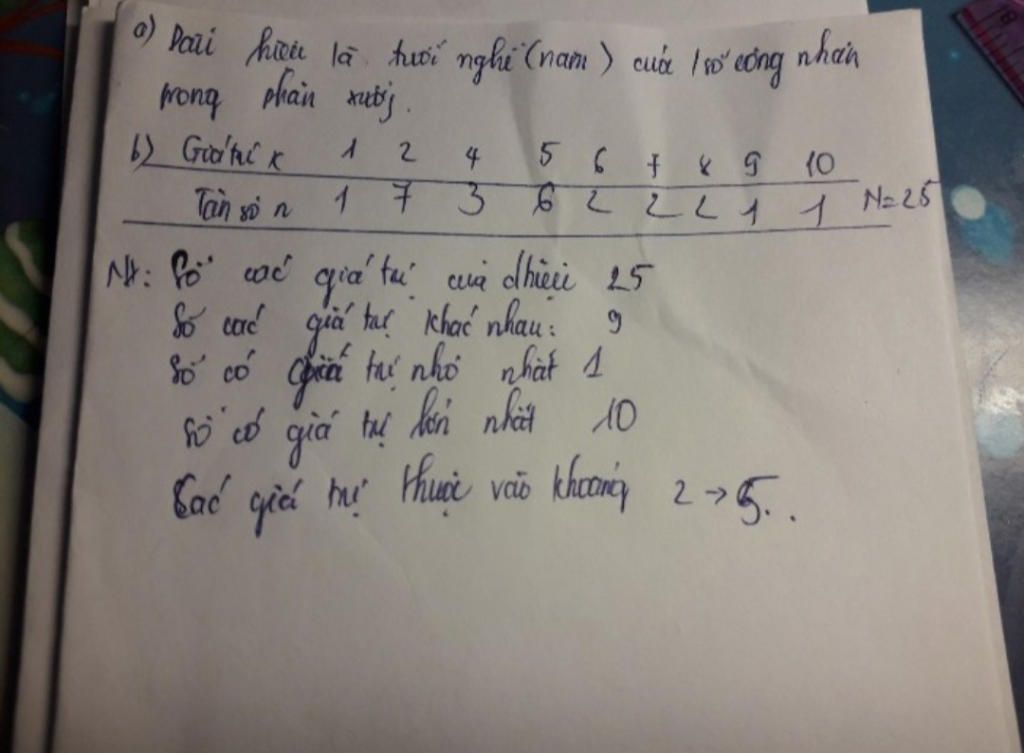 a) Dấu hiệu là tuổi nghề (năm) của 1 số công nhân
trong phân xưởng.
b) Giá trị x 1 2 4 5 6 7 8 9 10
Tần số n 1 7 3 6 2 2 2 1 1 N=25
Nx: Số các giá trị của dhiệu 25
Số các giá trị khác nhau: 9
Số có giá trị nhỏ nhất 1
Số có giá trị lớn nhất 10
Các giá trị thuộc vào khoảng 2 → 5..